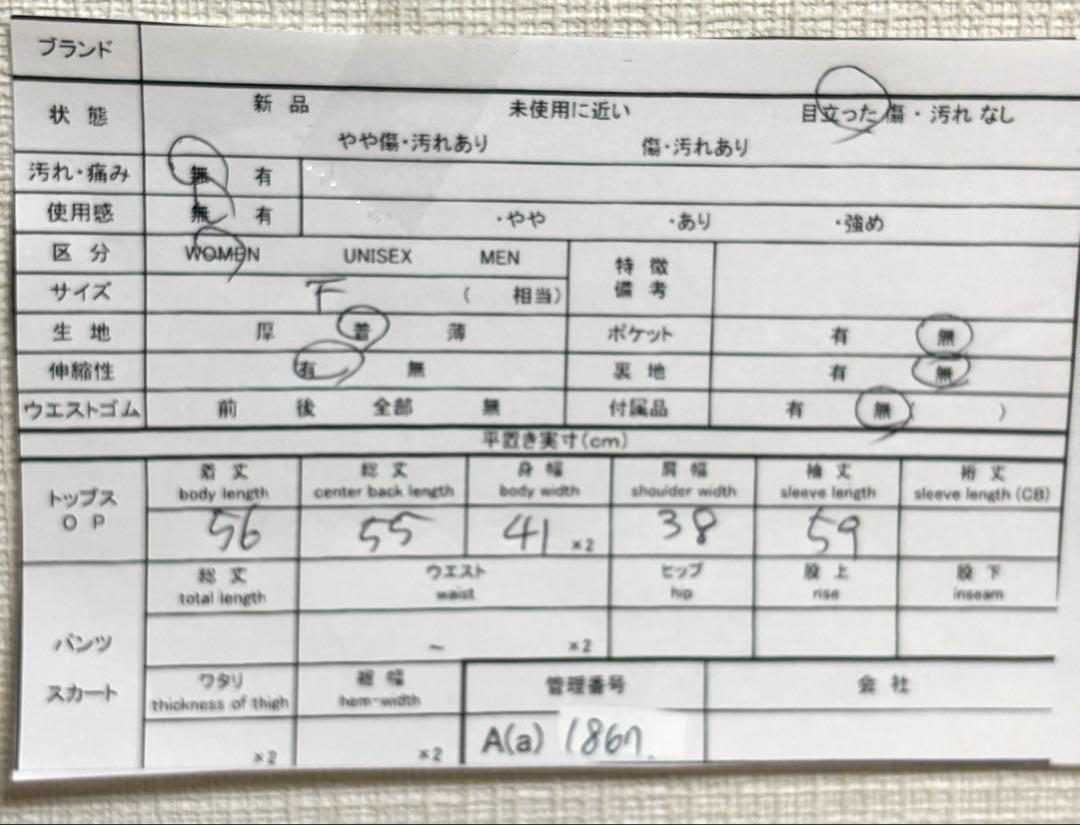 ブランド
状態 新品 未使用に近い 目立った傷・汚れなし
やや傷・汚れあり 傷・汚れあり
汚れ・痛み 無 有
使用感 無 有 ・やや ・あり ・強め
区分 WOMEN UNISEX MEN 特徴
備考
サイズ F ( 相当)
生地 厚 普 薄 ポケット 有 無
伸縮性 有 無 裏地 有 無
ウエストゴム 前 後 全部 無 付属品 有 無( )
平置き実寸(cm)
トップス
OP
着丈 総丈 身幅 肩幅 袖丈 裄丈
body length center back length body width shoulder width sleeve length sleeve length (CB)
56 55 41 ×2 38 59
総丈 ウエスト ヒップ 股上 股下
total length waist hip rise inseam
パンツ ~ ×2
スカート
ワタリ 裾幅 管理番号 会社
thickness of thigh hem-width
×2 ×2 A(a) 1867